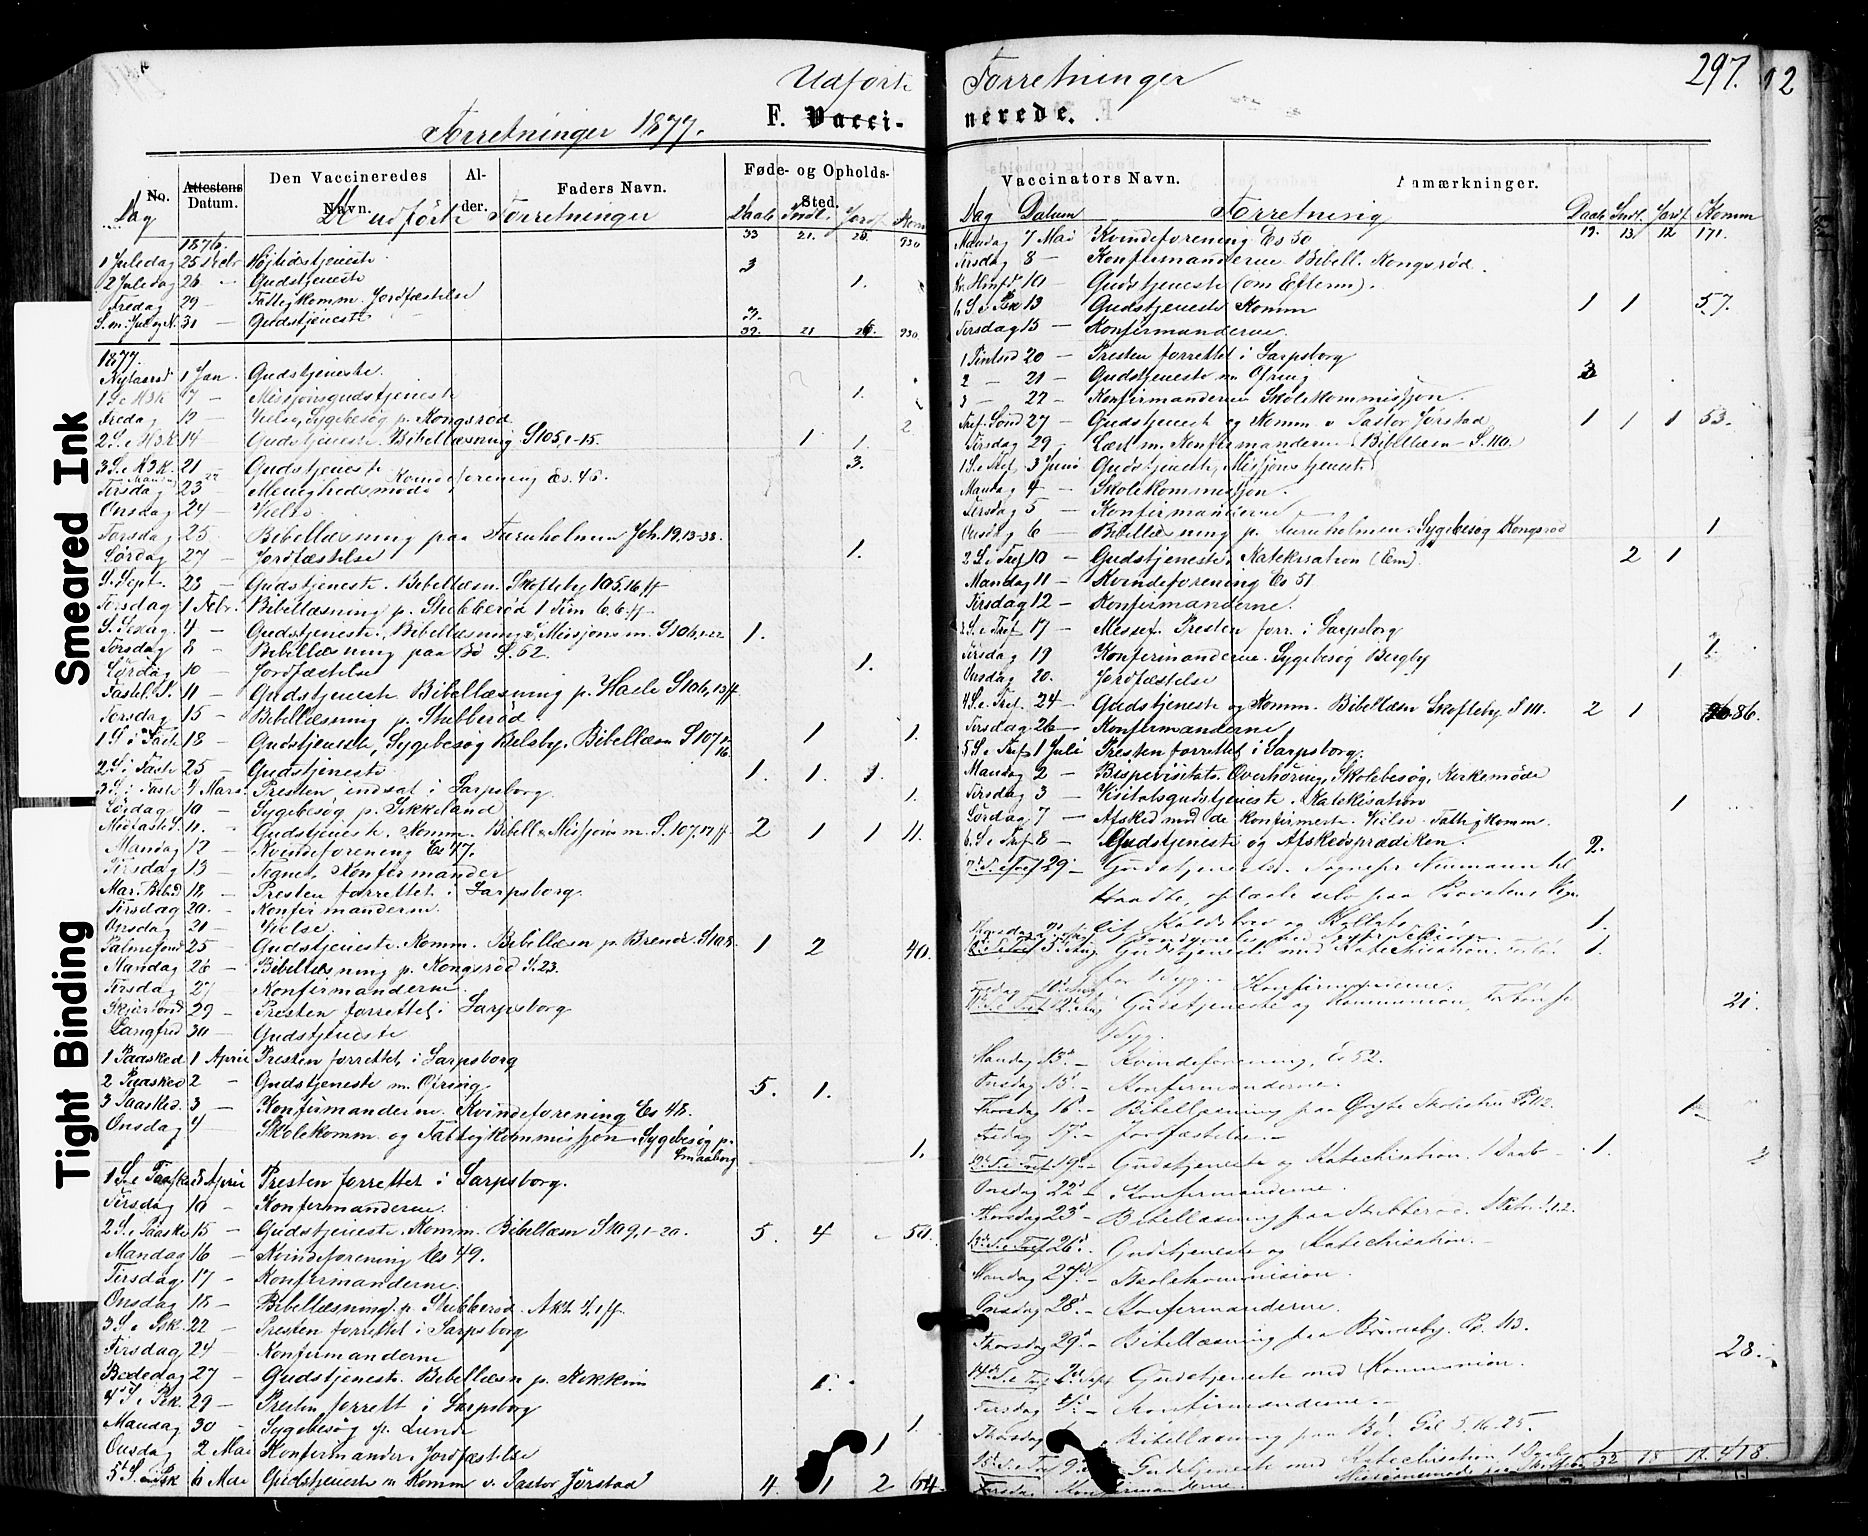 Udförte Forretninger
297. 12
Forretninger 1877.
F. Vacci-nerede.
Smeared Ink
Tight Binding
No. Attestens Datum. Den Vaccineredes Navn. Al-der. Faders Navn. Føde- og Opholds-Sted.
Dag udförte Forretninger Daab Indl. Jordf. Kom
33 21. 930
1876.
1 Juledag 25 Decbr Höjtidstjeneste. 3
2 Juledag 26 - Gudstjeneste 1.
Fredag 29 - Fattigkomm. Jordfæstelse
S. m. Jul og N. 31 - Gudstjeneste
21 930
1877.
Nytaarsd 1 Jan. Gudstjeneste.
1 S e H3K 7 - Missjonsgudstjeneste 1.
Fredag 12 - Vielse, Sygebesög p. Kongsröd 2
2 S. e H3K 14 - Gudstjeneste. Bibellæsning S 105,1-15. 1 1.
3 S. e H3K. 21 Gudstjeneste 3.
Mandag 22 Kvindeforening Es. 46.
Tirsdag 23 - Menighedsmöde
Onsdag 24 - Vielse
Torsdag 25 Bibellæsning paa Joh. 19,13-
Lördag 27 - Jordfæstelse 1.
S. Sept. 28 - Gudstjeneste. Bibellæsn. Skofteby 105,16 ff
Torsdag 1 Febr. Bibellæsning p. Stubberöd 1 Tim 6,6 ff
S. Sexag. 4 - Gudstjeneste. Bibellæsning, Missjons m. S 106,1-22 1.
Torsdag 8 - Bibellæsning paa Bö S. 52.
Lördag 10 - Jordfæstelse 1.
Fastel. S. 11 - Gudstjeneste Bibellæsning p. S 106,13 ff
Torsdag 15 - Bibellæsning p. Stubberöd.
1 S i Faste 18 - Gudstjeneste, Sygebesög Bibellæsn S 107 16. 1 1.
2 S. i Faste 25 - Gudstjeneste 1. 1. 1.
3 S. i Faste 4 Mars. Presten indsat i Sarpsborg.
Lördag 10 - Sygebesög p. Sikkeland 1.
Midfaste S. 11. - Gudstjeneste. Komm. Bibell & Missjons m. S. 107,17 ff 2 1 1 11.
Mandag 12 - Kvindeforening Es 47.
Tirsdag 13 - Konfirmander
Mar. Bebd 18 - Presten forrettet i Sarpsborg.
Tirsdag 20. - Konfirmanderne.
Onsdag 21 - Vielse
Palmesönd 25 - Gudstjeneste. Komm. Bibellæsn p. 1 2 40.
Mandag 26 - Bibellæsning p. Kongsröd S. 23.
Tirsdag 27 - Konfirmanderne.
Skjærtorsd 29 - Presten forrettet i Sarpsborg
Langfred 30 - Gudstjeneste
1 Paasked 1 April Presten forrettet i Sarpsborg
2 Paasked 2 - Gudstjeneste m. Ofring. 5. 1.
3 Paasked. 3 - Konfirmanderne. Kvindeforening Es 48.
Onsdag 4 - Skolekomm. og Fattigkommissjon. Sygebesög p. Smaaborg 1.
1 S. e Paaske 8 April Presten forrettet i Sarpsborg.
Tirsdag 10 - Konfirmanderne.
2 S. e Paaske 15 - Gudstjeneste. Komm. Bibellæsn S 109,1-20. 5. 4 50.
Mandag 16 - Kvindeforening Es 49.
Tirsdag 17 - Konfirmanderne.
Onsdag 18 - Bibellæsning p. Stubberöd.
3 S. e Psk. 22 - Presten forrettet i Sarpsborg
Tirsdag 24 - Konfirmanderne
Bededag 27 - Gudstjeneste. Bibellæsn p. 1.
4 S. e Psk. 29 - Presten forrett i Sarpsborg
Mandag 30 - Sygebesög p. Lunde 1.
Onsdag 2 Mai Konfirmander. Jordfæstelse 1
5 S. e Psk 6 Mai Gudstjeneste m Komm v. Pastor Jörstad 4. 1 2 64.
Vaccinators Navn. Anmærkninger.
Dag Datum Forretning Daab Indl. Jordf Komm
19. 13. 12 171.
Mandag 7 Mai Kvindeforening Es 50
Tirsdag 8 - Konfirmanderne. Bibell. Kongsröd.
Kr. Himf. 10 - Gudstjeneste (om Efterm).
6 S. e Psk 13 Gudstjeneste Komm 1 1 57.
Tirsdag 15 - Konfirmanderne.
1 Pintsd 20 - Presten forrettet i Sarpsborg
2 - 21 - Gudstjeneste m Ofring
3 - 22 - Konfirmanderne Skolekommissjon.
Tref. Sönd 27 - Gudstjeneste og Komm. v Pastor Jörstad 1 1 1 53.
Tirsdag 29 - m. Konfirmanderne. Bibellæsn S. 110.
1 S. e Tref. 3 Juni Gudstjeneste, Missjonstjeneste
Mandag 4 - Skolekommissjon.
Tirsdag 5 - Konfirmanderne
Onsdag 6 - Bibellæsning p. Sygebesög Kongsröd 1
2 S. e Tref 10 - Gudstjeneste. Katekisation (Em). 2 1
Mandag 11 - Kvindeforening Es 51
Tirsdag 12 - Konfirmanderne.
S. e Tref. 17 - Messef. Presten forr. i Sarpsborg
Tirsdag 19 Konfirmanderne. Sygebesög Bergby
Onsdag 20. Jordfæstelse 1
4 S. e Tref. 24 - Gudstjeneste og Komm. Bibellæsn Skofteby S 111. 2 1 86.
Tirsdag 26 - Konfirmanderne
5 S. e Tref 1 Juli Presten forrettet i Sarpsborg.
Mandag 2 - Bispevisitats. Overhöring, Skolebesög, Kirkemöde
Tirsdag 3 - Visitatsgudstjeneste. Katekisation
Lördag 7 - Afsked med de konfirmerte. Vielse. Fattigkomm. 1
6 S. e Tref 8 - Gudstjeneste og Afskedsprædiken. 2.
S. e Tref 29 - Gudstjeneste. Sognepr Neumann til
paa Provstens Vegne
1.
Gudstjeneste med Katechisation. 1.
Fredag Konfirmanderne.
S. e Tref 12 Aug Gudstjeneste og Kommunion, 21.
Mandag 13 - Kvindeforening, Es 52.
Onsdag 15 - Konfirmanderne.
Thorsdag 16 - Bibellæsning paa 112.
Fredag 17 - Jordfæstelse. 1
S. e Tref 19 - Gudstjeneste og Katechisation. 1 Daab 1.
Onsdag 22 - Konfirmanderne.
Thorsdag 23 - Bibellæsning paa Stubberöd.
13 S. e Tref 26. Gudstjeneste og Katechisation.
Mandag 27 - Skolekommision.
Onsdag 28 - Konfirmanderne.
Thorsdag 29 - Bibellæsning paa Brunsby. Ps. 113.
14 S. e Tref 2 Sept Gudstjeneste med Kommunion. 28.
Tirsdag 4 - Konfirmanderne.
Thorsdag Bibellæsning paa Bö. Gal 5,16-25.
15 S. e Tref 9 Gudstjeneste med Katechisation, 1 Daab 1
418.
Tirsdag Konfirmanderne.